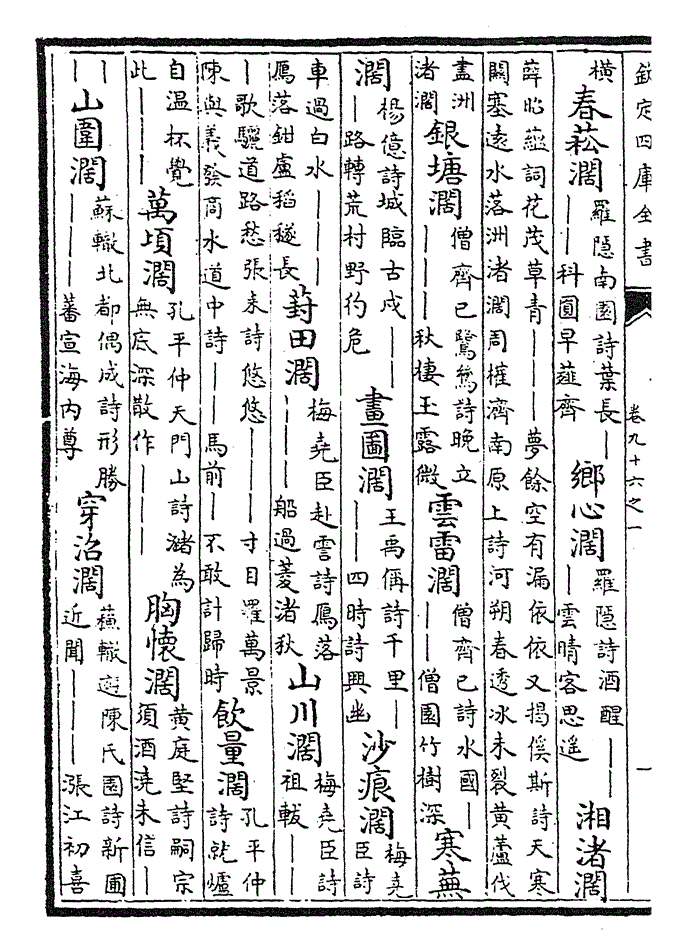 欽定四庫全書 卷九十六之一 一
橫 春菘濶 羅隱南園詩葉長丨丨丨科圓早薤齊 鄉心濶 羅隱詩酒醒丨丨丨雲晴客思遥 湘渚濶
薛昭蘊詞花茂草青丨丨丨夢餘空有漏依依又揭傒斯詩天寒
關塞遠水落洲渚濶周權濟南原上詩河朔春透冰未裂黃蘆伐
盡洲渚濶 銀塘濶 僧齊已鷺鷥詩晚立丨丨丨秋棲玉露微 雲雷濶 僧齊已詩水國丨丨丨僧園竹樹深 寒蕪
濶 楊億詩城臨古戍丨丨丨路轉荒村野彴危 畫圖濶 王禹偁詩千里丨丨丨四時詩興幽 沙痕濶 梅堯臣詩
車過白水丨丨丨鴈落鉗盧稻穟長 葑田濶 梅堯臣赴霅詩鴈落丨丨丨船過菱渚秋 山川濶 梅堯臣詩祖軷丨丨
丨歌驪道路愁張耒詩悠悠丨丨丨寸目羅萬景
陳與義發商水道中詩丨丨馬前丨不敢計歸時 飲量濶 孔平仲詩就爐
自温杯覺此丨丨丨 萬頃濶 孔平仲天門山詩瀦為無底深散作丨丨丨 胸懷濶 黃庭堅詩嗣宗須酒澆未信丨丨
丨 山圍濶 蘇轍北都偶成詩形勝丨丨丨蕃宣海内尊 穿沼濶 蘇轍遊陳氏園詩新圃近聞丨丨丨漲江初喜